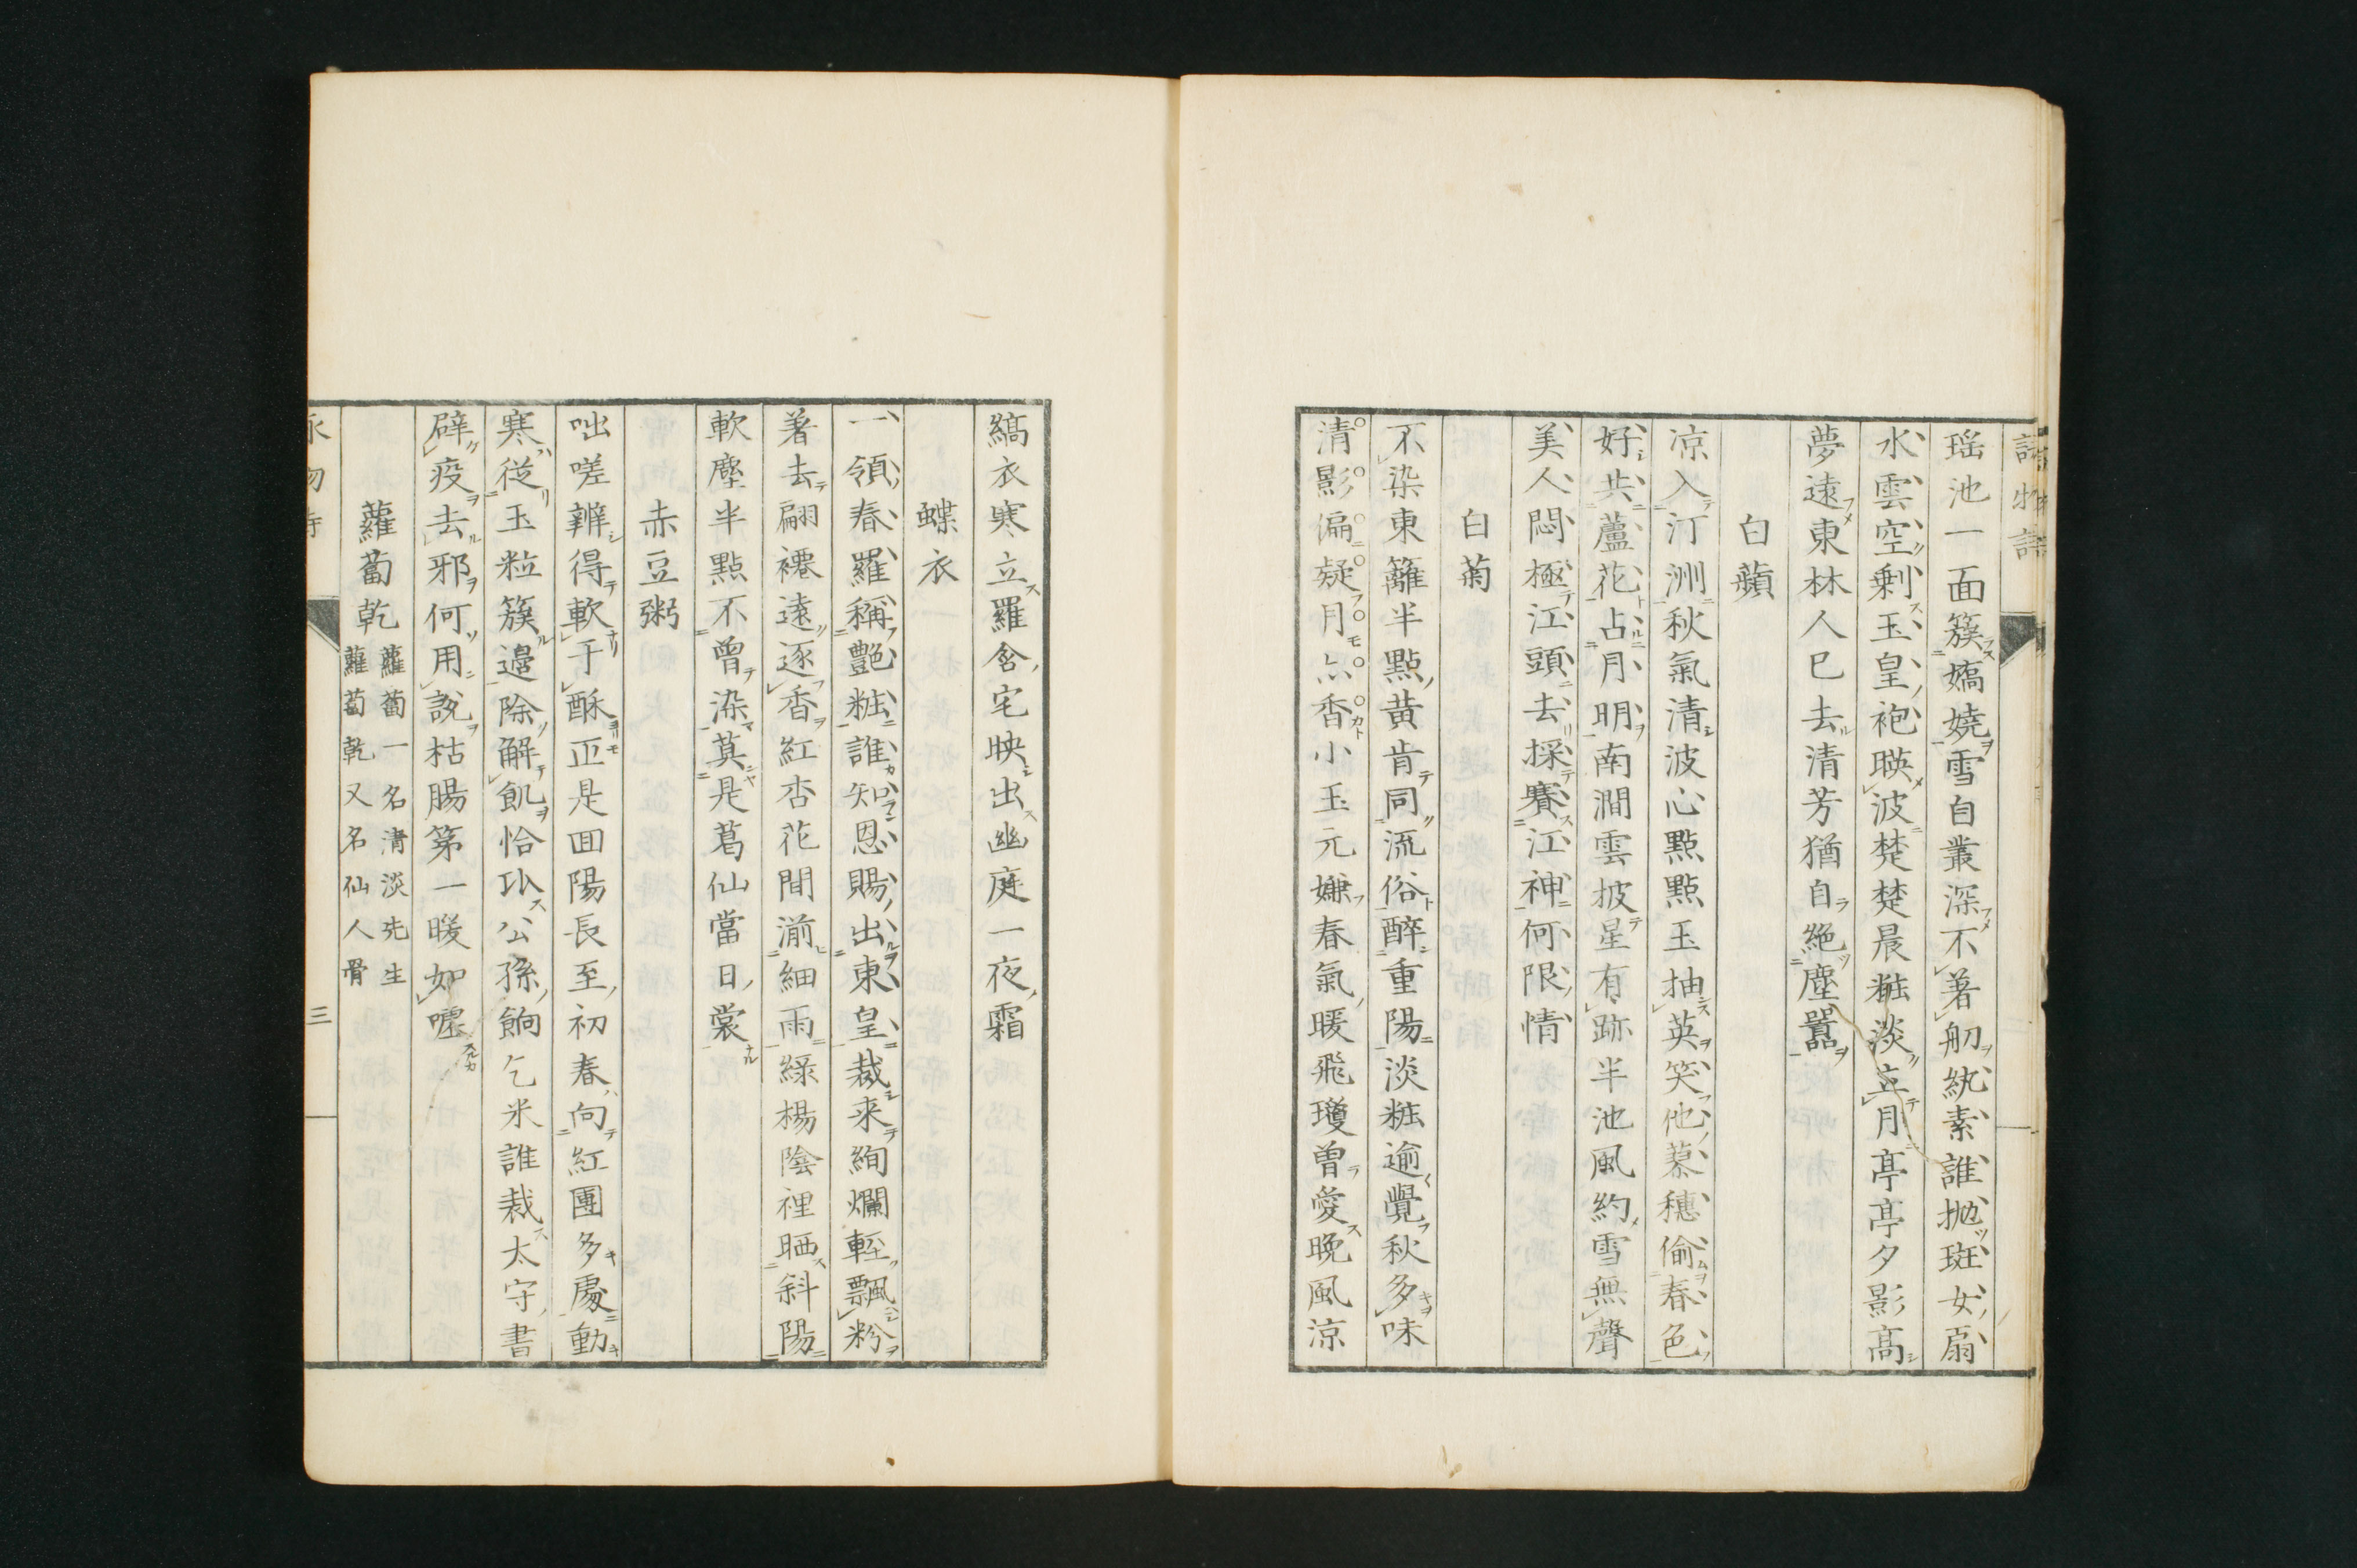 詠物詩
瑶池一面簇嬌嬈雪自叢深不著舠紈素誰抛斑女扇
水雲空剰玉皇袍暎波楚楚晨粧淡立月亭亭夕影高
夢遠東林人已去清芳猶自絶塵囂
白蘋
凉入汀洲秋氣清波心點點玉抽英笑他慕穗偷春色
好共蘆花占月明南澗雲披星有跡半池風約雪無聲
美人悶極江頭去採賽江神何限情
白菊
不染東籬半點黃肯同流俗醉重陽淡粧逾覺秋多味
清影偏疑月点香小玉元嫌春氣暖飛瓊曽愛晚風凉
縞衣寒立羅含宅映出幽庭一夜霜
蝶衣
一領春羅稱艶粧誰知恩賜出東皇裁来絢爛輕飄粉
著去翩褼遠逐香紅杏花間湔細雨綠楊陰裡晒斜陽
軟塵半點不曾染莫是葛仙當日裳
赤豆粥
咄嗟辨得軟于酥正是回陽長至初春向紅團多處動
寒從玉粒簇邊除解飢恰似公孫餉乞米誰裁太守書
辟疫去邪何用說枯腸第一暖如噓
蘿蔔乾 蘿蔔一名清淡先生
蘿蔔乾又名仙人骨
三